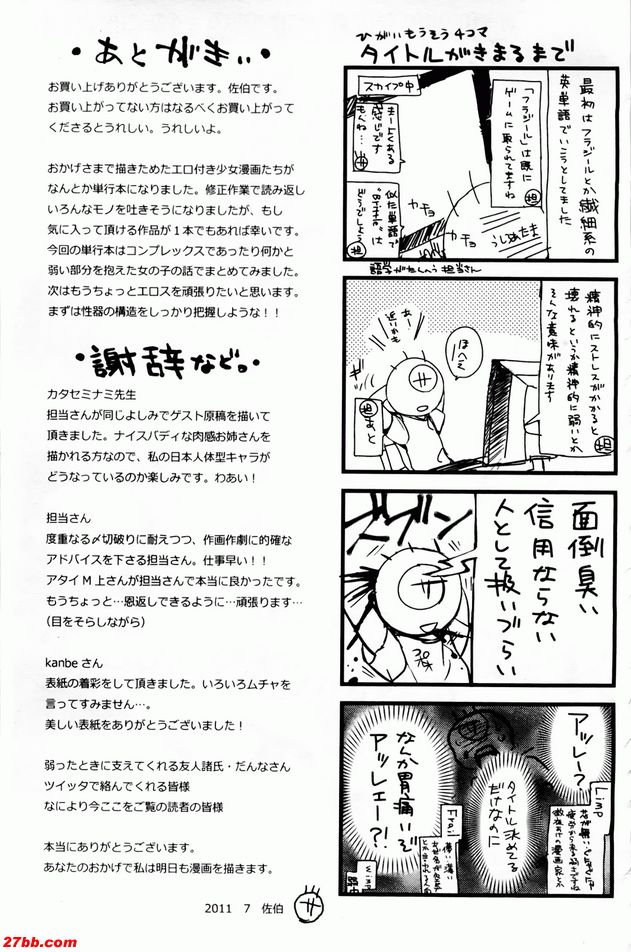 ・あとがき・
お買い上げありがとうございます。佐伯です。
お買い上がってない方はなるべくお買い上がって
くださるとうれしい。うれしいよ。
おかげさまで描きためたエロ付き少女漫画たちが
なんとか単行本になりました。修正作業で読み返し
いろんなモノを吐きそうになりましたが、もし
気に入って頂ける作品が1本でもあれば幸いです。
今回の単行本はコンプレックスであったり何かと
弱い部分を抱えた女の子の話でまとめてみました。
次はもうちょっとエロスを頑張りたいと思います。
まずは性器の構造をしっかり把握しような!!
・謝辞など。・
カタセミナミ先生
担当さんが同じよしみでゲスト原稿を描いて
頂きました。ナイスバディな肉感お姉さんを
描かれる方なので、私の日本人体型キャラが
どうなっているのか楽しみです。わあい!
担当さん
度重なる〆切破りに耐えつつ、作画作劇に的確な
アドバイスを下さる担当さん。仕事早い!!
アタイM上さんが担当で本当に良かったです。
もうちょっと…恩返しできるように…頑張ります…
(目をそらしながら)
kanbeさん
表紙の着彩をして頂きました。いろいろムチャを
言ってすみません…。
美しい表紙をありがとうございました!
弱ったときに支えてくれる友人諸氏・だんなさん
ツイッタで絡んでくれる皆様
なにより今ここをご覧の読者の皆様
本当にありがとうございます。
あなたのおかげで私は明日も漫画を描きます。
2011 7 佐伯 サ
ひがいもうそう4コマ
タイトルがきまるまで
最初はフラジールとか繊細系の
英単語でいこうとしてました
スカイプ中
「フラジール」は既に
ゲームに取られてますね
担
まーよくある
感じです
もんね…
サ
似た単語で
"Brittle"は
どうでしょう
担
カチョ
カチョ
うしろあたま
語学がたんのう 担当さん
精神的にストレスがかかると
壊れるというか精神的に弱いとか
そんな意味があります
担
ほへー
あー
近いかも
サ
担
あと
面倒臭い
信用ならない
人として扱いづらい
サ
アッレー?
タイトル決めてる
だけなのに
なんか胃痛いぞ
アッレェー?!
Limp
Frail
Wimp
27bb.com